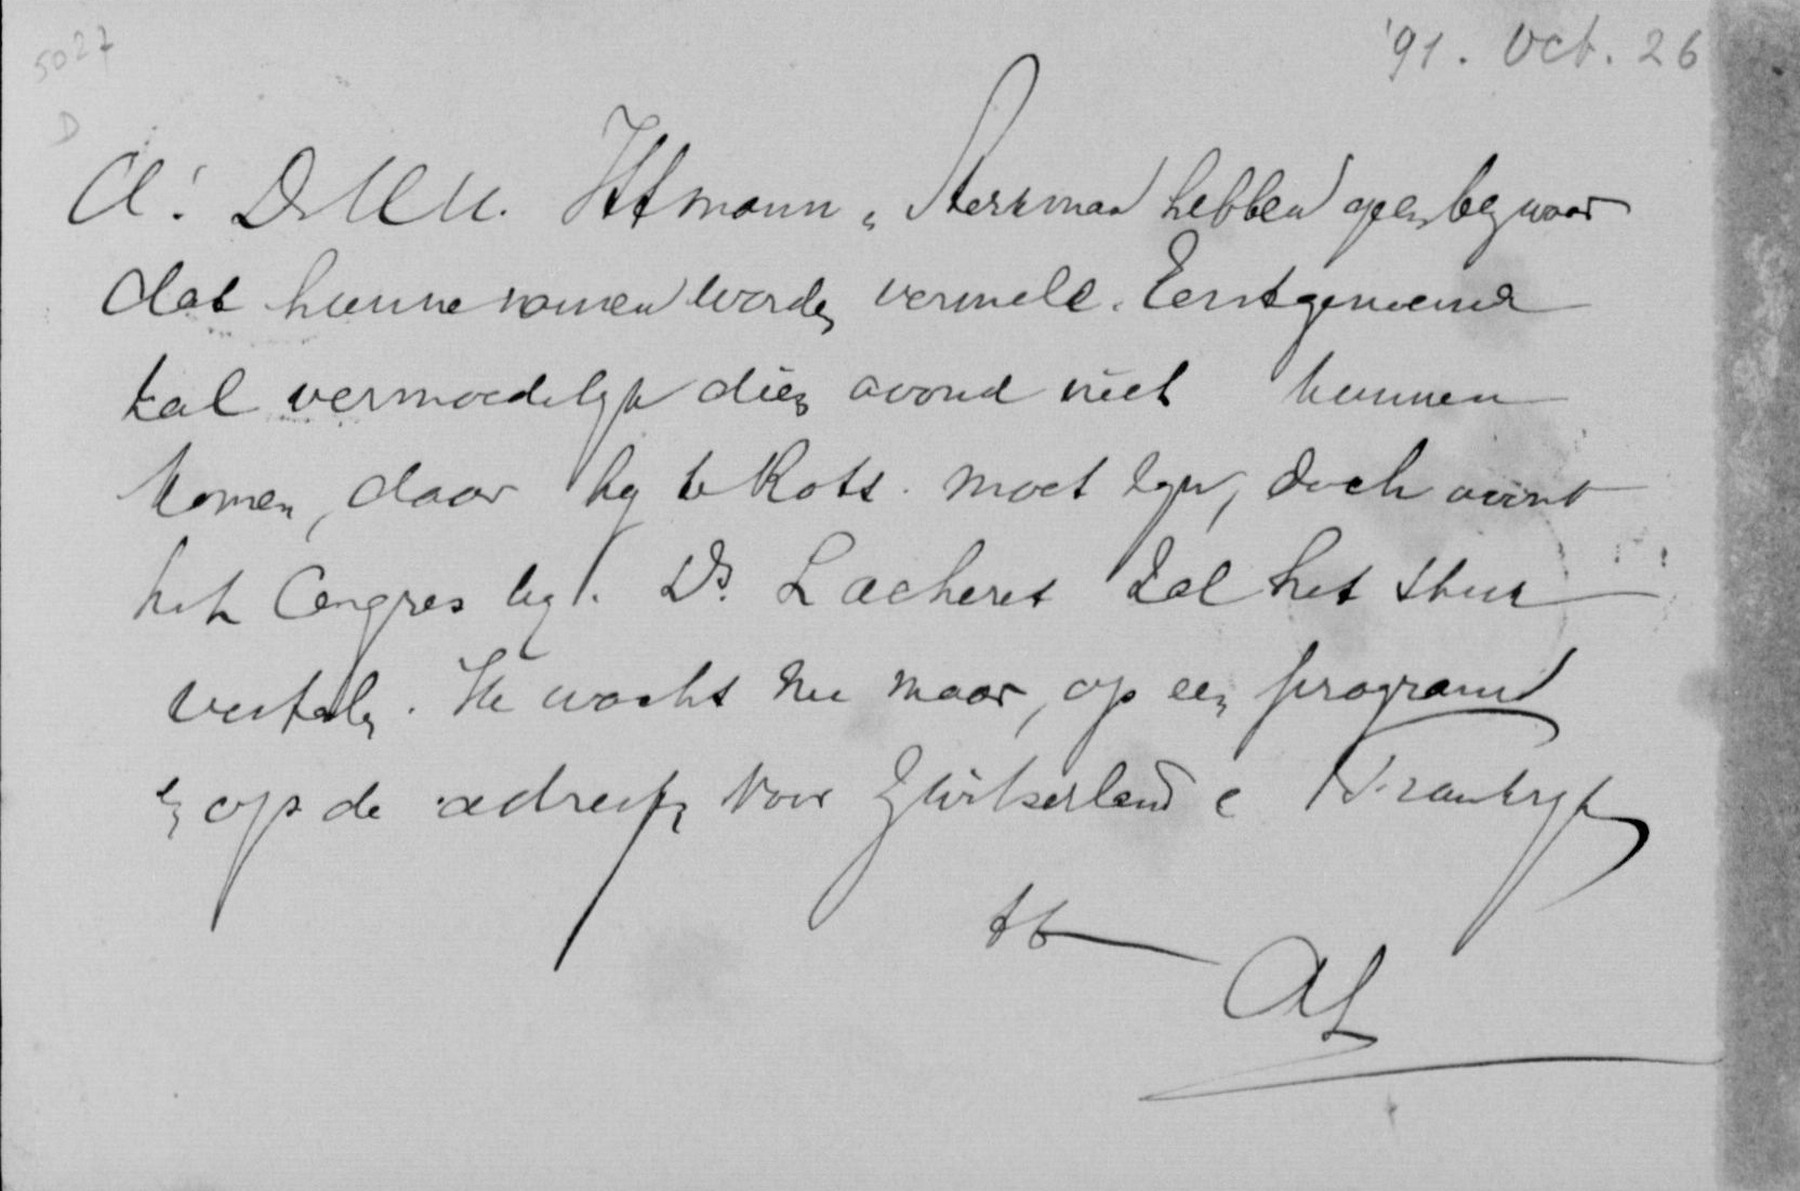 5027
'91. Oct. 26
D
A! D. M. M. Ittmann & Sterkman hebben geen bezwaar
dat hunne namen worden vermeld. Eerstgenoemde
zal vermoedelyk dien avond niet kunnen
komen, daar hy te Rott. moet zyn, doch woont
het Congres by. Ds. Lacheret zal het stuk
vertalen. Ik wacht nu maar, op een program
en op de adressen voor Zwitserland e Frankryk
tt
AL